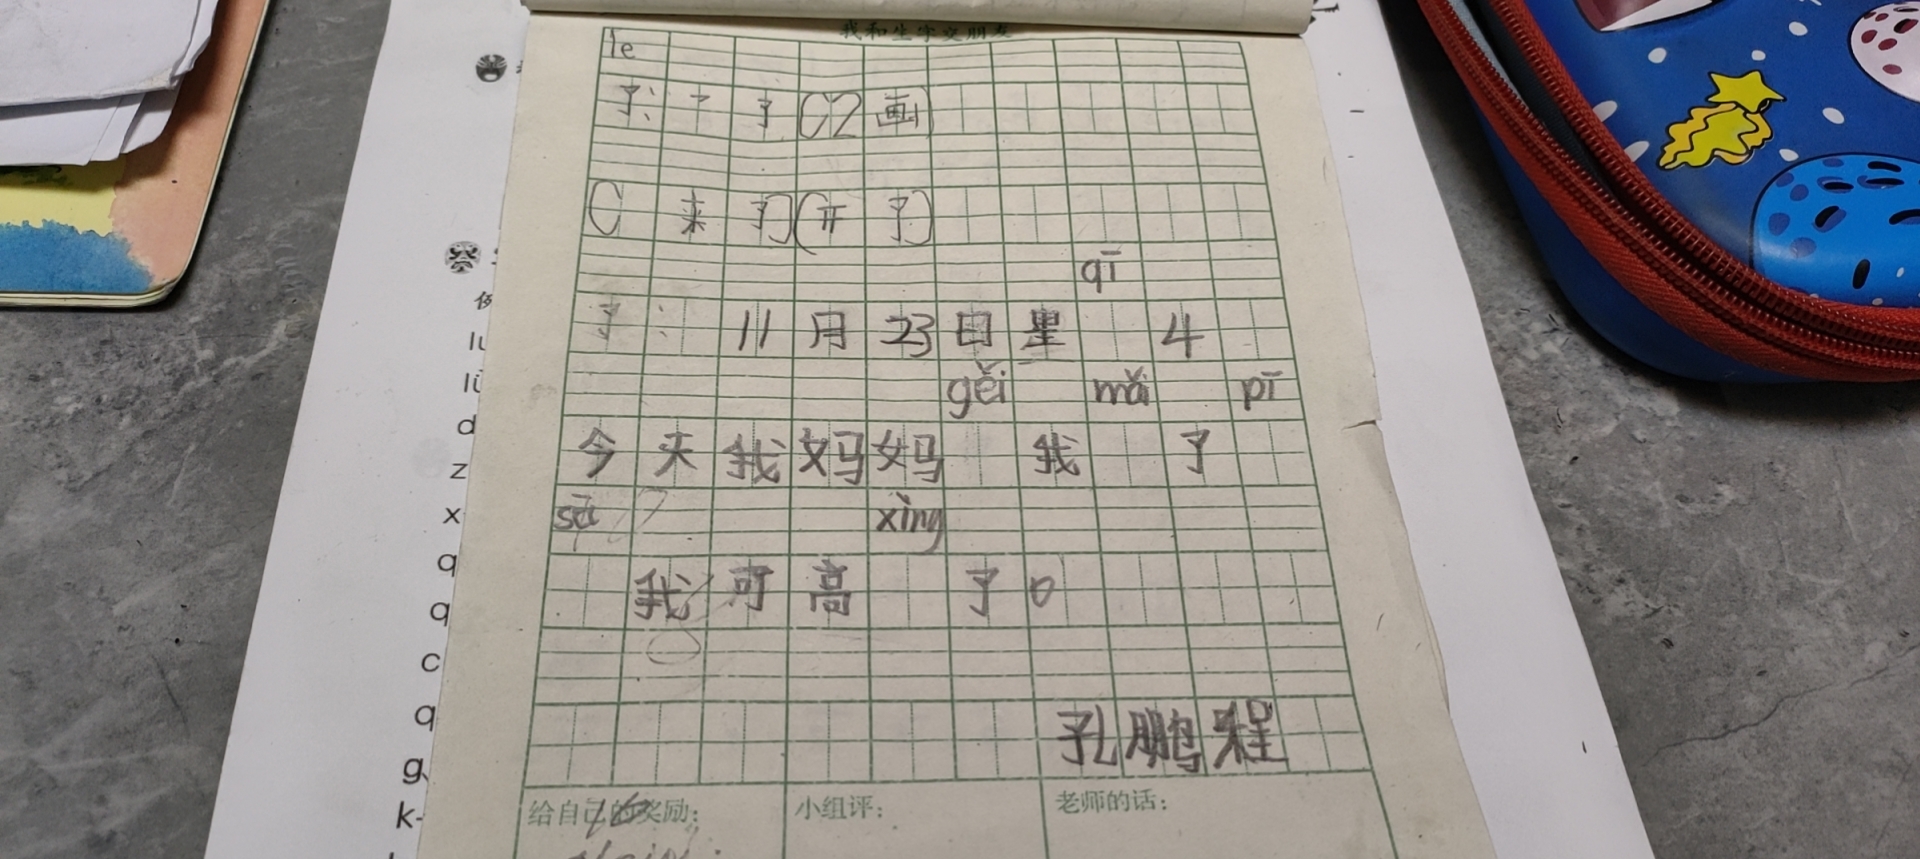 我和生字交朋友
le
了: 了 了 (2画)
(来了)(开了)
qī
了: 11月23日星 4
gěi mǎi pī
今天我妈妈 我 了
sà xìng
我可高 了。
孔鹏程
给自己的奖励: 小组评: 老师的话:
lǜ
d
z
x
q
q
c
q
g
k-